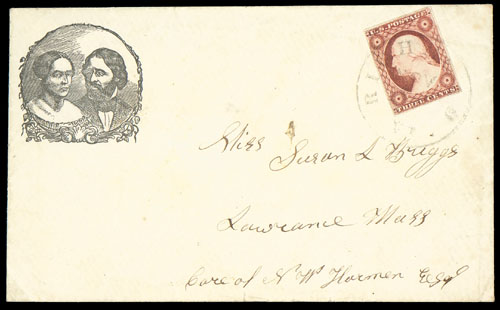 U.S. POSTAGE
THREE CENTS
Miss Susan L Briggs
Lawrance Mass
Care of N W Harmon Esqr